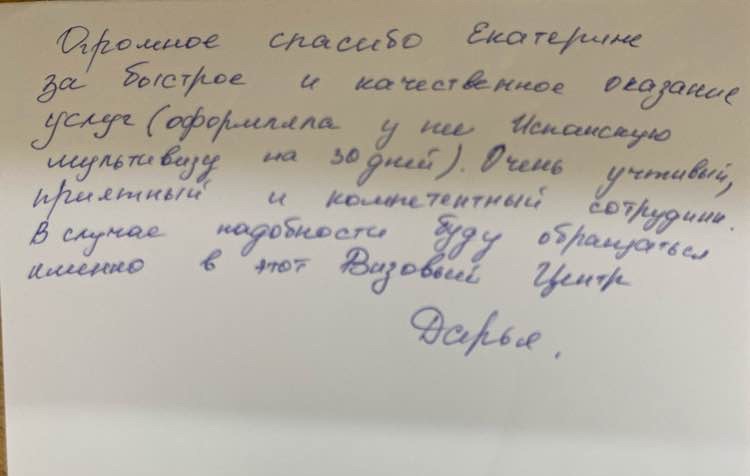 Огромное спасибо Екатерине
за быстрое и качественное оказание
услуг (оформляла у нее Испанскую
мультивизу на 30 дней). Очень учтивый,
приятный и компетентный сотрудник.
В случае надобности буду обращаться
именно в этот Визовый Центр
Дарья.